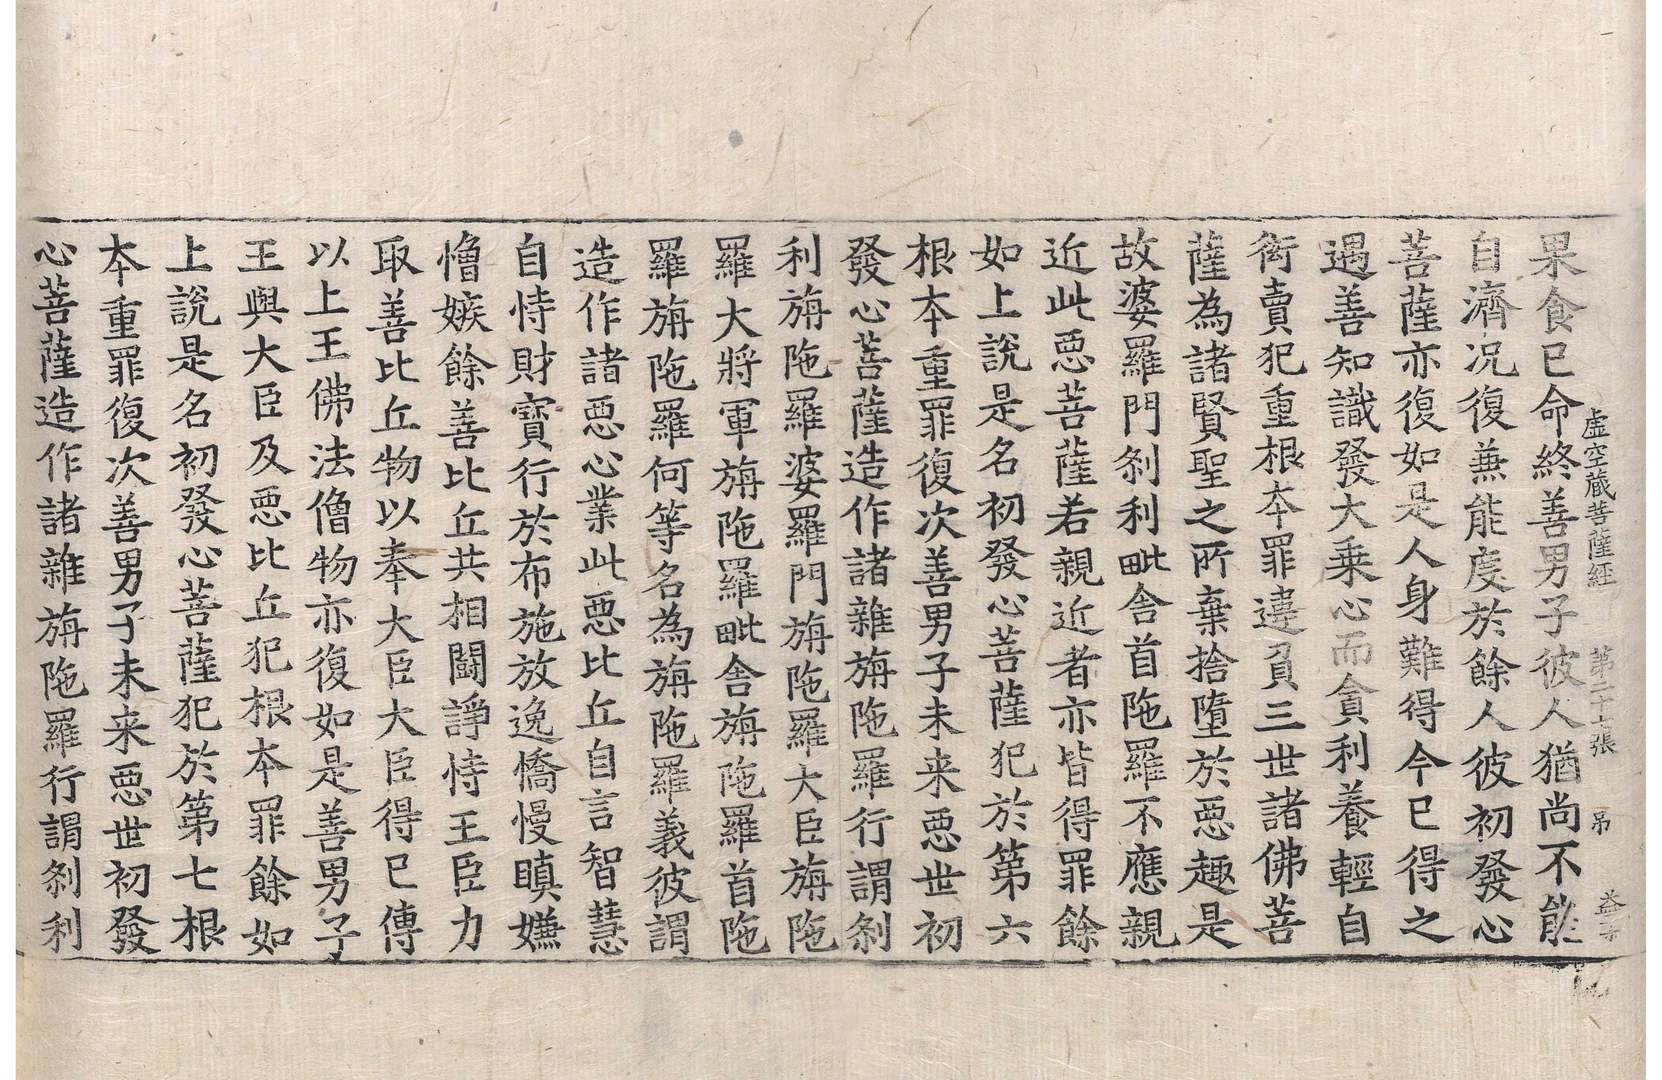 虚空藏菩薩経 第二十七張 吊
果食已命終善男子彼人猶尚不能
自濟况復無能度於餘人彼初發心
菩薩亦復如是人身難得今已得之
遇善知識發大乗心而貪利養輕自
衒賣犯重根夲罪違負三世諸佛菩
薩為諸賢聖之所棄捨墮於惡趣是
故婆羅門刹利毗舎首陁羅不應親
近此惡菩薩若親近者亦皆得罪餘
如上說是名初發心菩薩犯於第六
根夲重罪復次善男子未来惡世初
發心菩薩造作諸雜旃陁羅行謂刹
利旃陁羅婆羅門旃陁羅大臣旃陁
羅大將軍旃陁羅毗舎旃陁羅首陁
羅旃陁羅何等名為旃陁羅義彼謂
造作諸惡心業此惡比丘自言智慧
自恃財寳行於布施放逸憍慢瞋嫌
憎嫉餘善比丘共相鬪諍恃王臣力
取善比丘物以奉大臣大臣得已傳
以上王佛法僧物亦復如是善男子
王與大臣及惡比丘犯根夲罪餘如
上說是名初發心菩薩犯於第七根
夲重罪復次善男子未来惡世初發
心菩薩造作諸雜旃陁羅行謂刹利